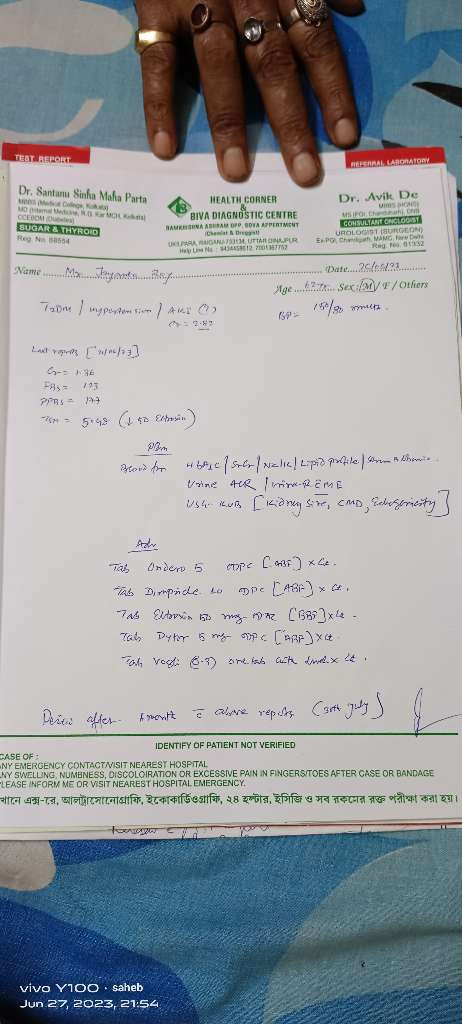 TEST REPORT
REFERRAL LABORATORY
Dr. Santanu Sinha Maha Parta
MBBS (Medical College, Kolkata)
MD (Internal Medicine, R.G. Kar MCH, Kolkata)
CCEBDM (Diabetes)
SUGAR & THYROID
Reg. No. 68554
HEALTH CORNER
&
BIVA DIAGNOSTIC CENTRE
RAMKRISHNA ASHRAM OPP. SOVA APPERTMENT
(Chemist & Druggist)
UKILPARA, RAIGANJ-733134, UTTAR DINAJPUR.
Help Line No.: 9434458612, 7001367752
Dr. Avik De
MBBS (HONS)
MS (PGI, Chandigarh), DNB
CONSULTANT ONCOLOGIST
UROLOGIST (SURGEON)
Ex-PGI, Chandigarh, MAMC, New Delhi
Reg. No. 61332
Name Mr. Jayanta Roy Date
Age Sex: M / F / Others
T2DM / Hypertension / AKI (?)
BP =
Cr = 2.82
Last reports
Cr = 1.36
FBS = 123
PPBS = 197
TSH = 5.48
Plan
HbA1C / Na/K / Lipid profile /
Urine ACR / Urine R EME
USG KUB [Kidney size, CMD, Echogenicity]
Adv
Tab 5 [ABF] x Ct.
Tab 10 [ABF] x Ct.
Tab 50 mg [BBF] x Ct.
Tab Dytor 5 mg [ABF] x Ct.
Tab Vogli one tab with lunch x Ct.
Review after 1 month c above reports (30th July)
IDENTIFY OF PATIENT NOT VERIFIED
CASE OF :
ANY EMERGENCY CONTACT/VISIT NEAREST HOSPITAL
ANY SWELLING, NUMBNESS, DISCOLOIRATION OR EXCESSIVE PAIN IN FINGERS/TOES AFTER CASE OR BANDAGE
PLEASE INFORM ME OR VISIT NEAREST HOSPITAL EMERGENCY.
খানে এক্স-রে, আলট্রাসোনোগ্রাফি, ইকোকার্ডিওগ্রাফি, ২৪ হল্টার, ইসিজি ও সব রকমের রক্ত পরীক্ষা করা হয়।
vivo Y100 · saheb
Jun 27, 2023, 21:54